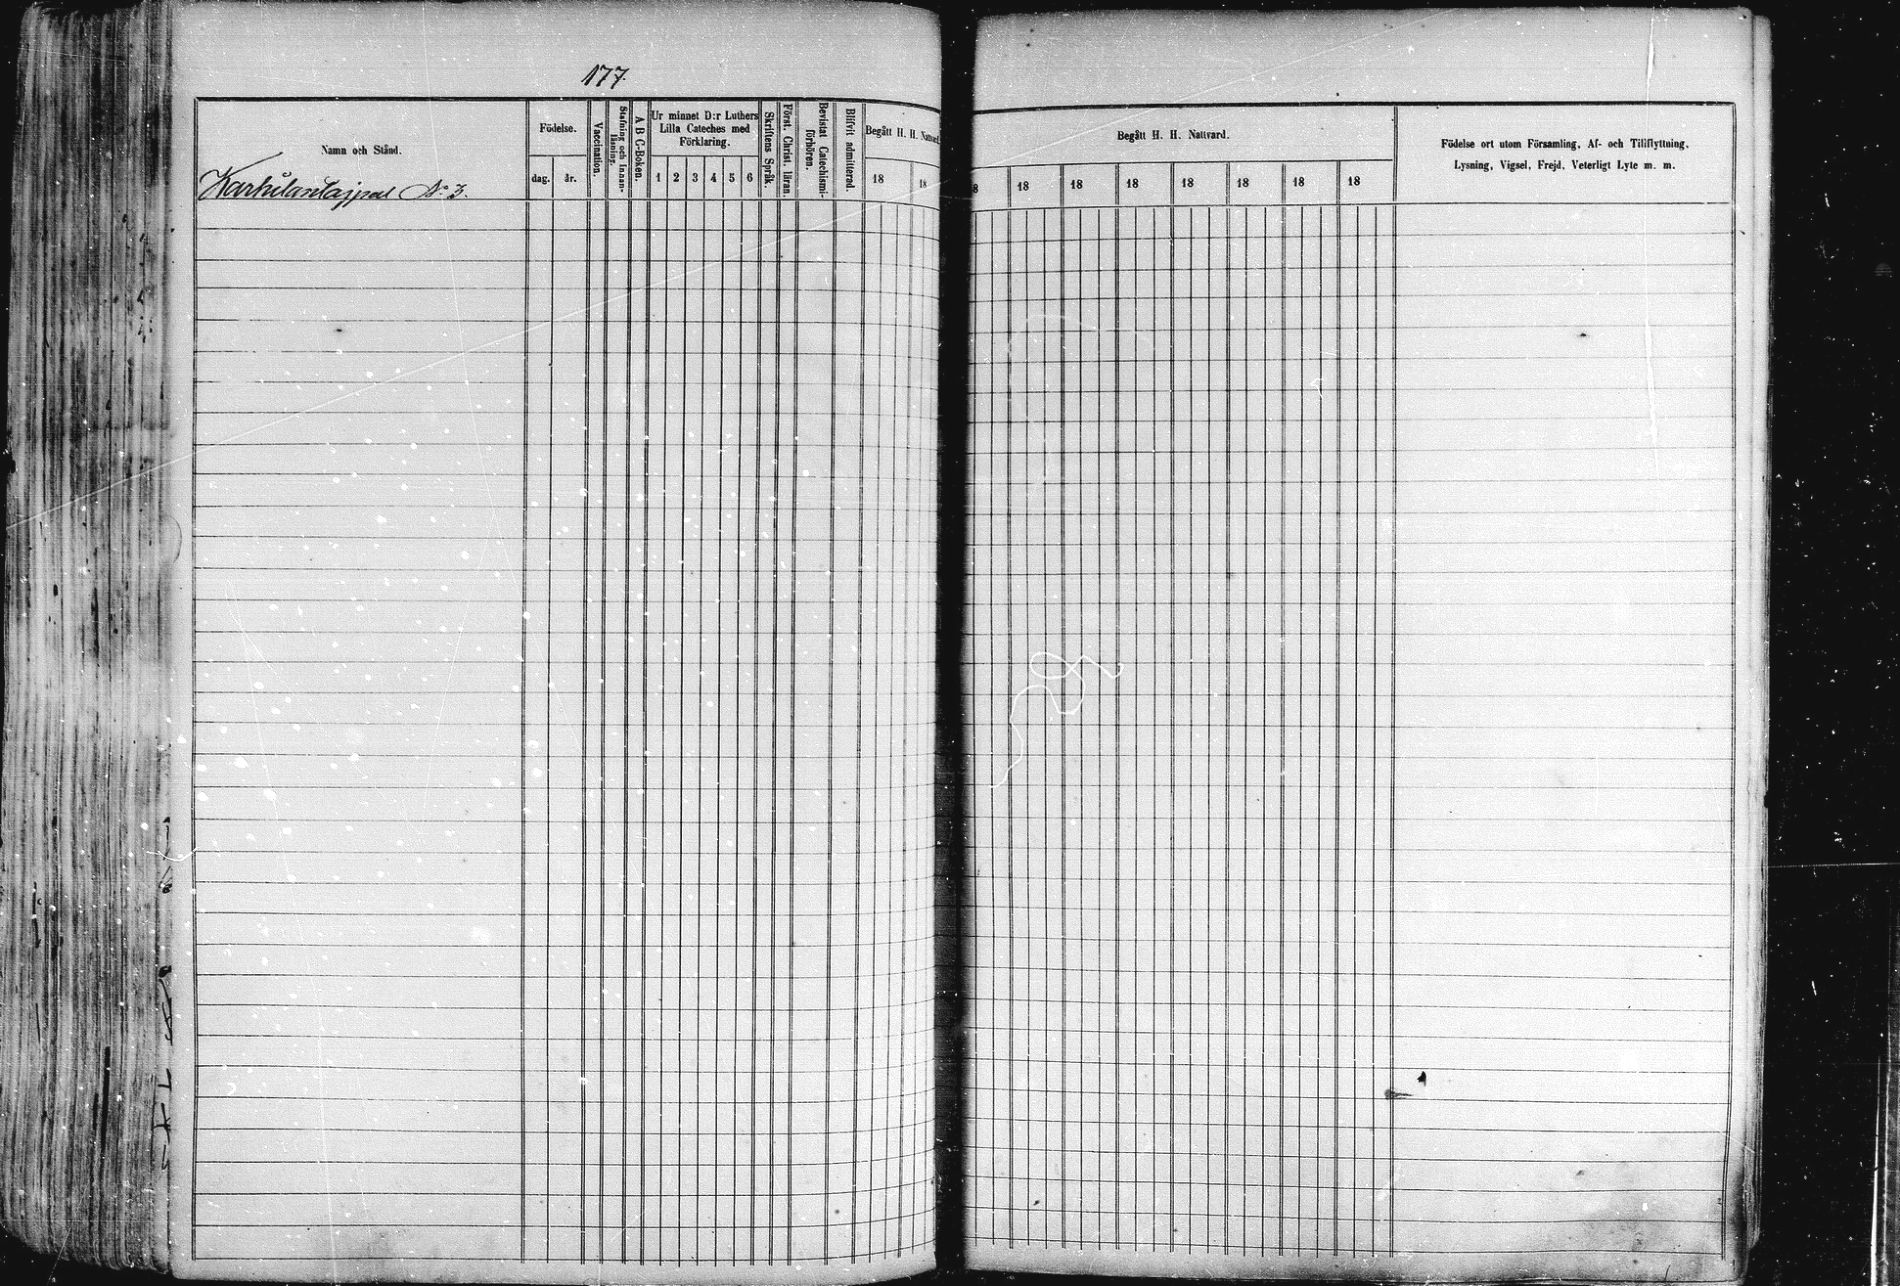 177.
Namn och Stånd.
Födelse.
dag. år.
Vaccination.
Stafning och Innan-
läsning.
A B C-Boken.
Ur minnet D:r Luthers
Lilla Cateches med
Förklaring.
1 2 3 4 5 6
Skriftens Språk.
Först. Christ. läran.
Bevistat Catechismi-
förhören.
Blifvit admitterad.
Begått H. H. Nattvard.
18 18
Begått H. H. Nattvard.
8 18 18 18 18 18 18 18
Födelse ort utom Församling, Af- och Tillflyttning,
Lysning, Vigsel, Frejd, Veterligt Lyte m. m.
№ 3.